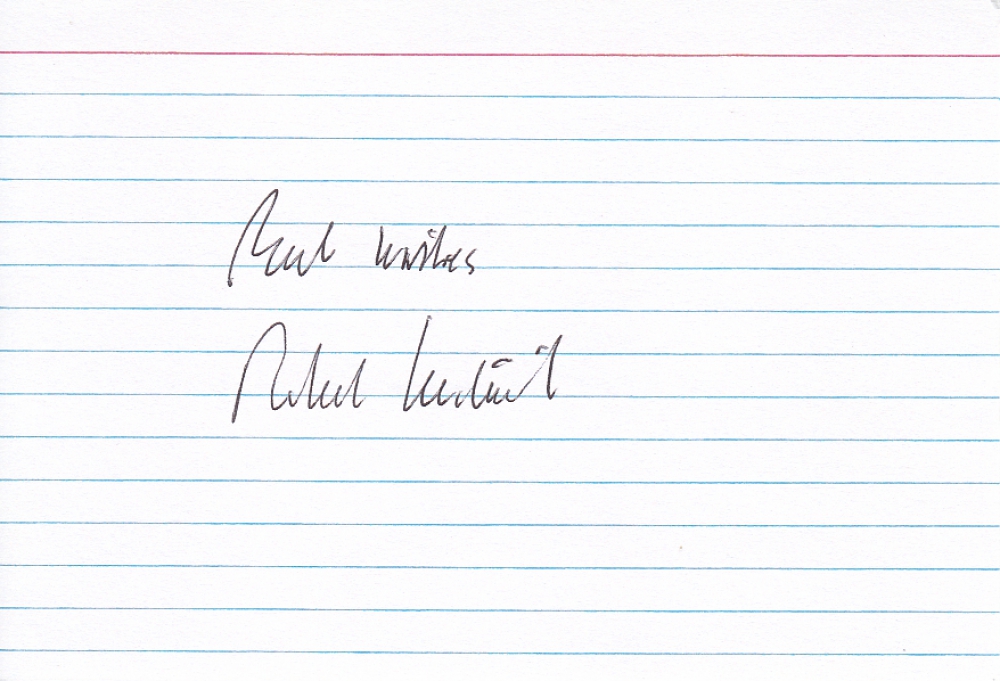 Best wishes
Robert